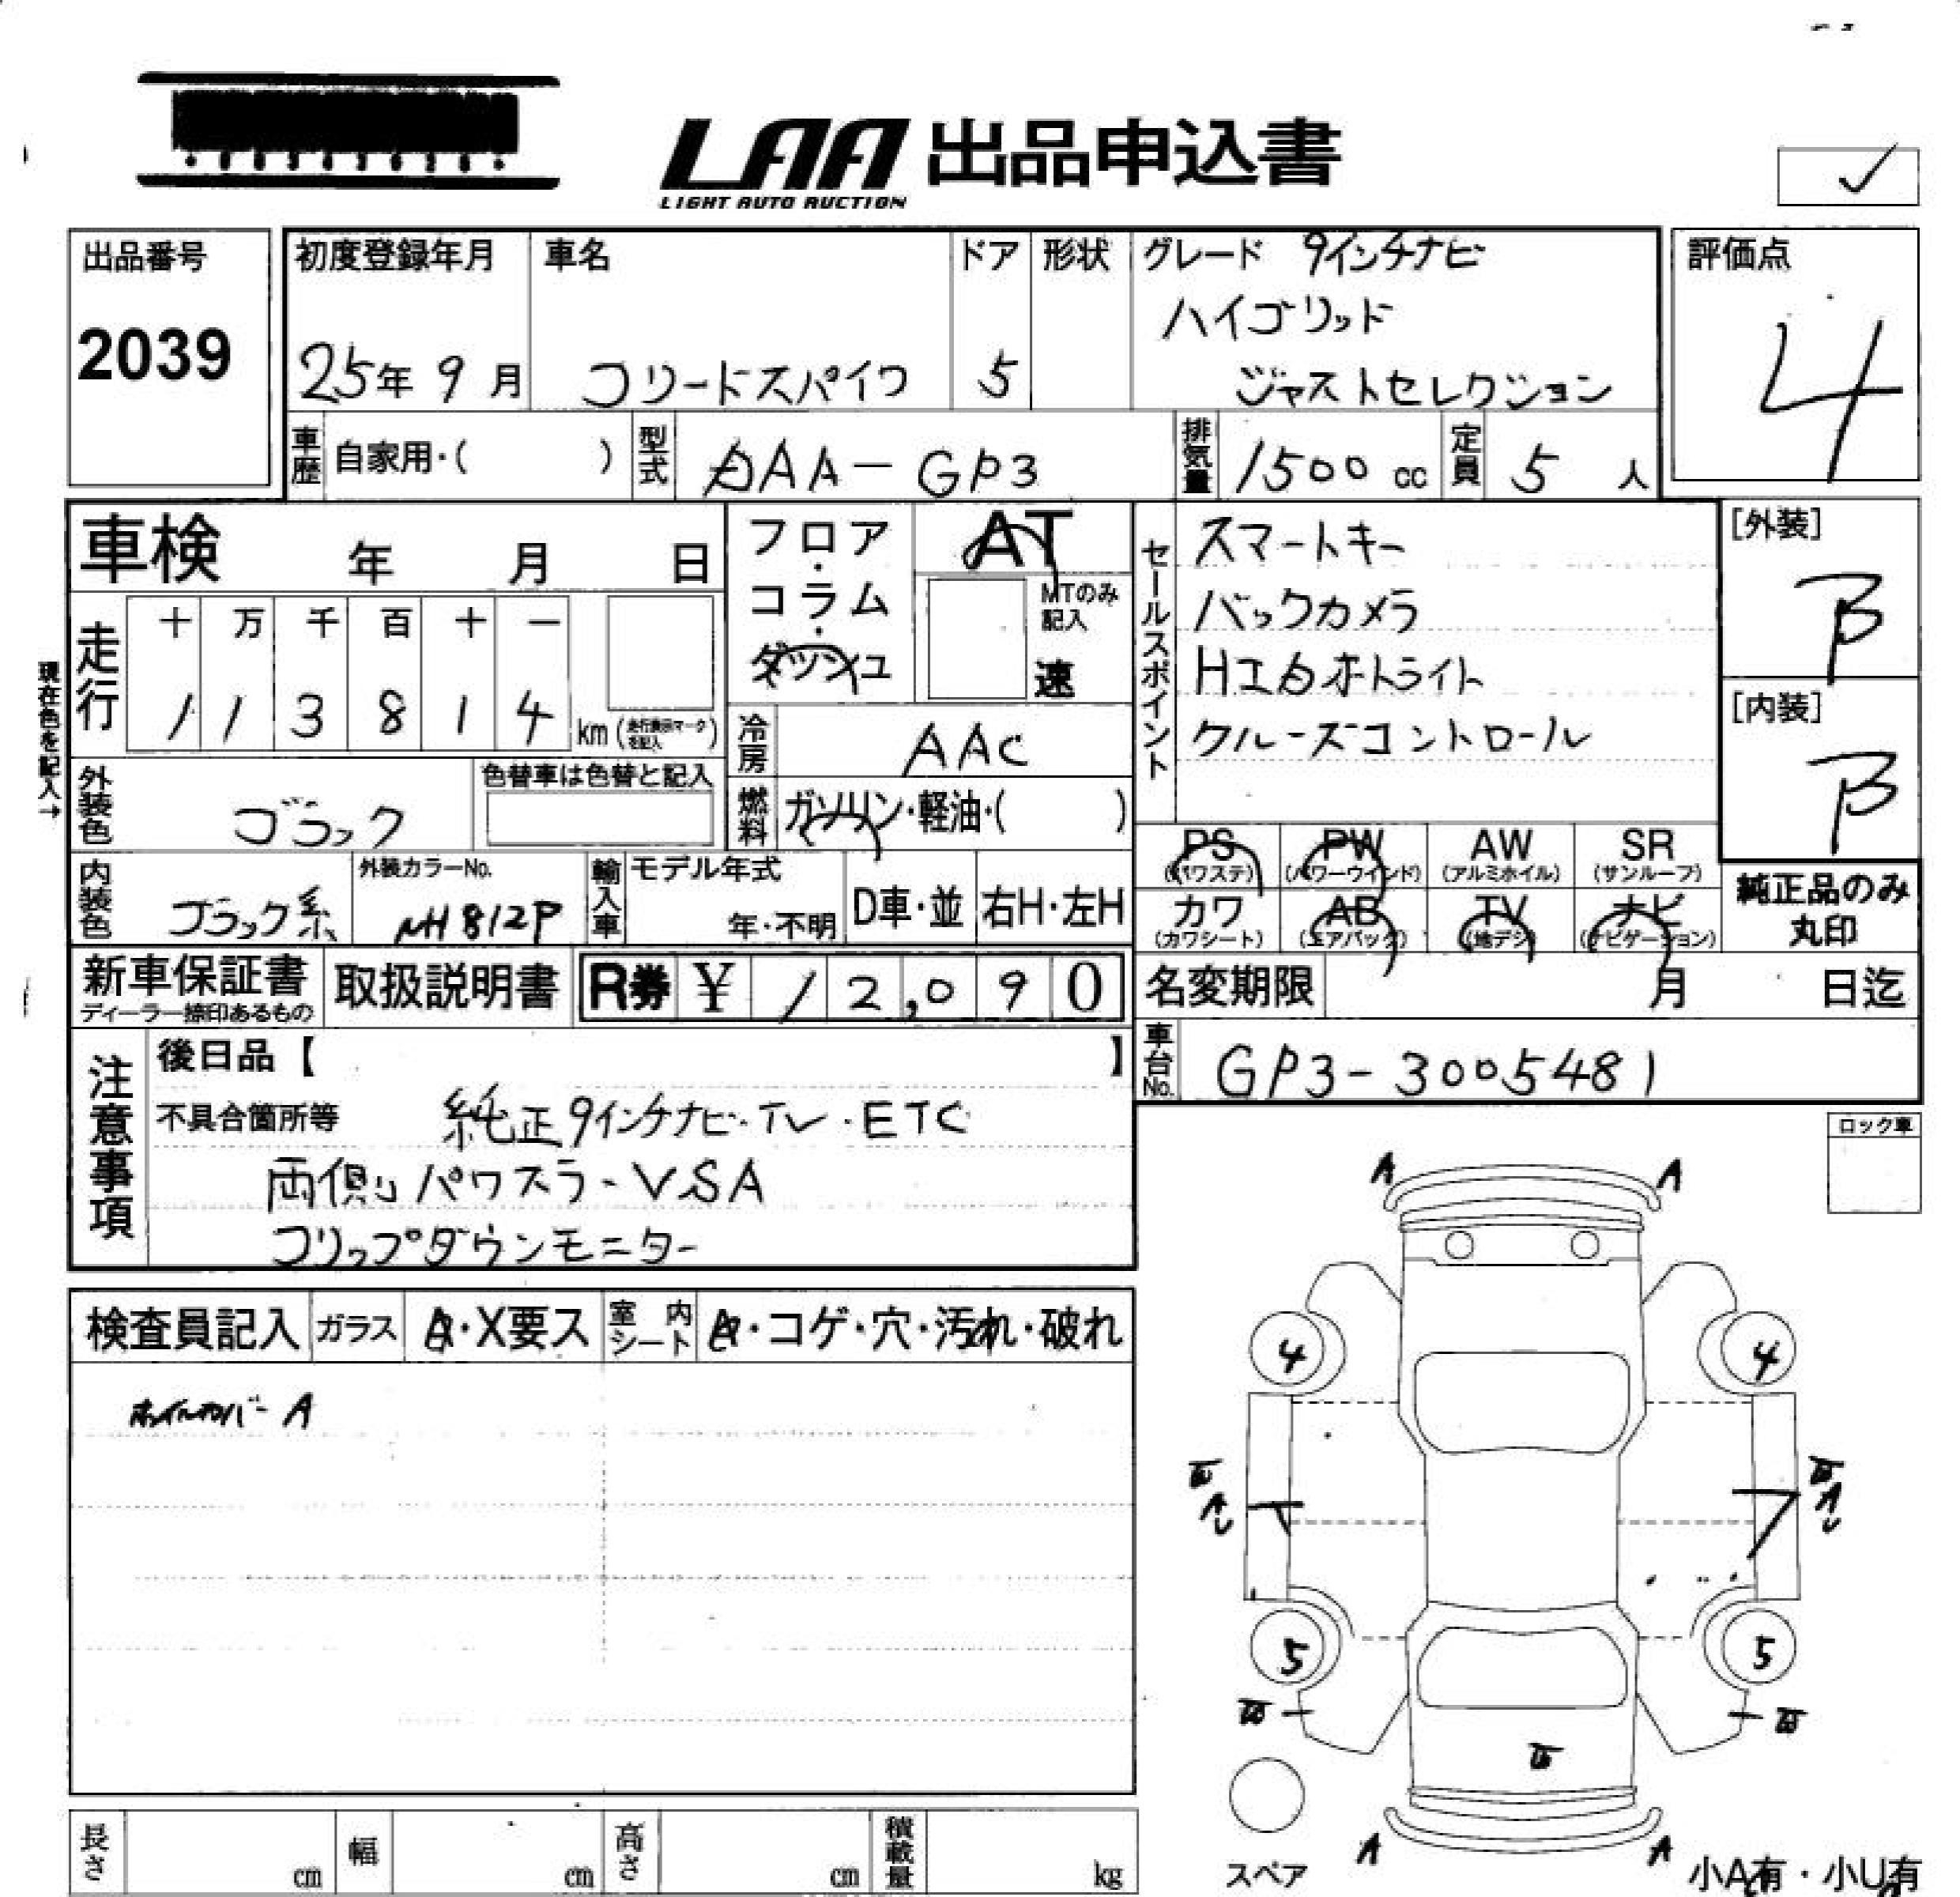 LAA 出品申込書
LIGHT AUTO AUCTION
✓
出品番号
2039
初度登録年月
25年 9月
車名
フリードスパイク
ドア
5
形状
グレード 9インチナビ
ハイブリッド
ジャストセレクション
評価点
4
車歴 自家用・( )
型式 DAA-GP3
排気量 1500 cc
定員 5 人
車検 年 月 日
フロア・コラム・ダッシュ
AT
MTのみ記入
速
セールスポイント
スマートキー
バックカメラ
HIDオートライト
クルーズコントロール
[外装]
B
[内装]
B
現在色を記入→
走行
十 万 千 百 十 一
1 1 3 8 1 4 km (走行表示マークを記入)
冷房 AAC
外装色 ブラック
色替車は色替と記入
燃料 ガソリン・軽油・( )
PS (パワステ) PW (パワーウインド) AW (アルミホイル) SR (サンルーフ)
カワ (カワシート) AB (エアバッグ) TV (地デジ) ナビ (ナビゲーション)
純正品のみ
丸印
内装色 ブラック系
外装カラーNo.
NH812P
輸入車
モデル年式
年・不明
D車・並
右H・左H
新車保証書
ディーラー捺印あるもの
取扱説明書
R券 ¥ 12,090
名変期限 月 日迄
車台No. GP3-3005481
注意事項
後日品【 】
不具合箇所等 純正9インチナビ・TV・ETC
両側パワスラ・VSA
フリップダウンモニター
ロック車
検査員記入
ガラス A・X要ス
室内シート A・コゲ・穴・汚れ・破れ
ホイルカバーA
A A
4 4
5 5
A A
スペア
小A有・小U有
長さ cm
幅 cm
高さ cm
積載量 kg